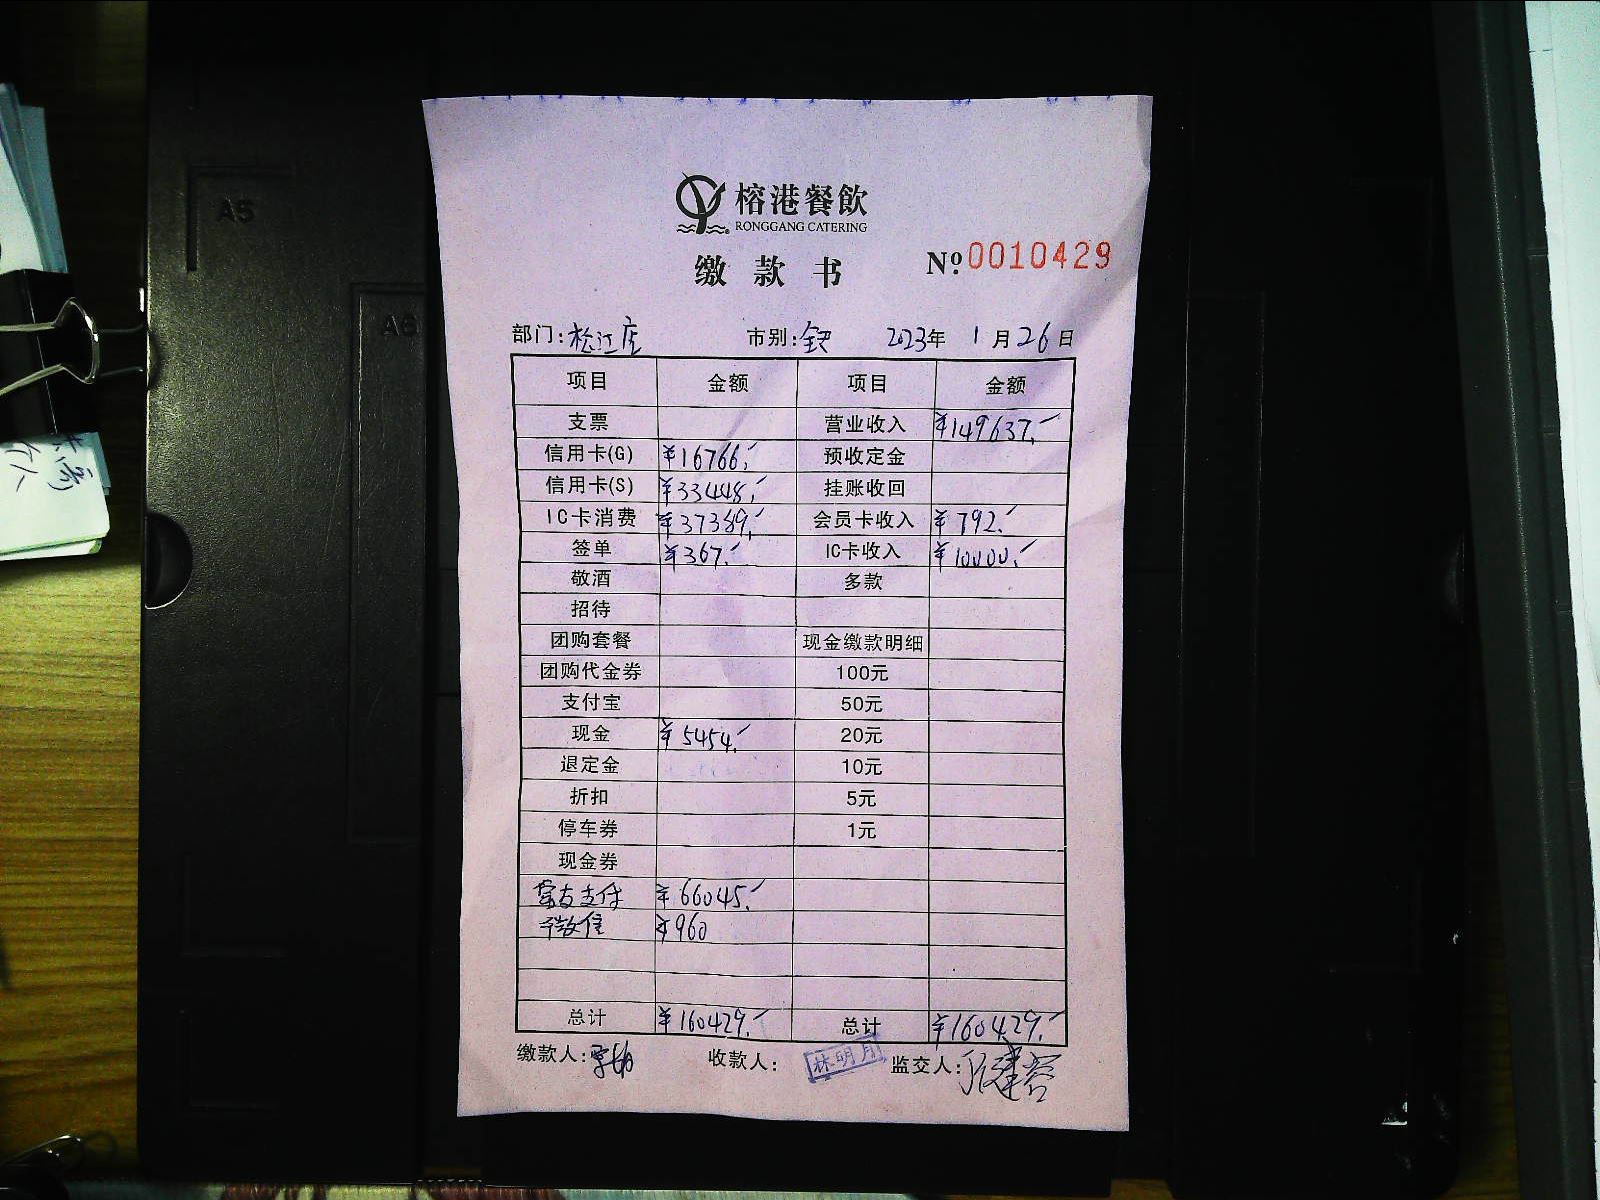 A5
A6
榕港餐飲
RONGGANG CATERING
缴款书
№ 0010429
部门: 松江店 市别: 全天 2023年 1月26日
项目 金额 项目 金额
支票 营业收入 ¥149637.-
信用卡(G) ¥16766.- 预收定金
信用卡(S) ¥33448.- 挂账收回
IC卡消费 ¥37389.- 会员卡收入 ¥792.-
签单 ¥367.- IC卡收入 ¥10000.-
敬酒 多款
招待
团购套餐 现金缴款明细
团购代金券 100元
支付宝 50元
现金 ¥5454.- 20元
退定金 10元
折扣 5元
停车券 1元
现金券
富友支付 ¥66045.-
微信 ¥960
总计 ¥160429.- 总计 ¥160429.-
缴款人: 收款人: 林明月 监交人: